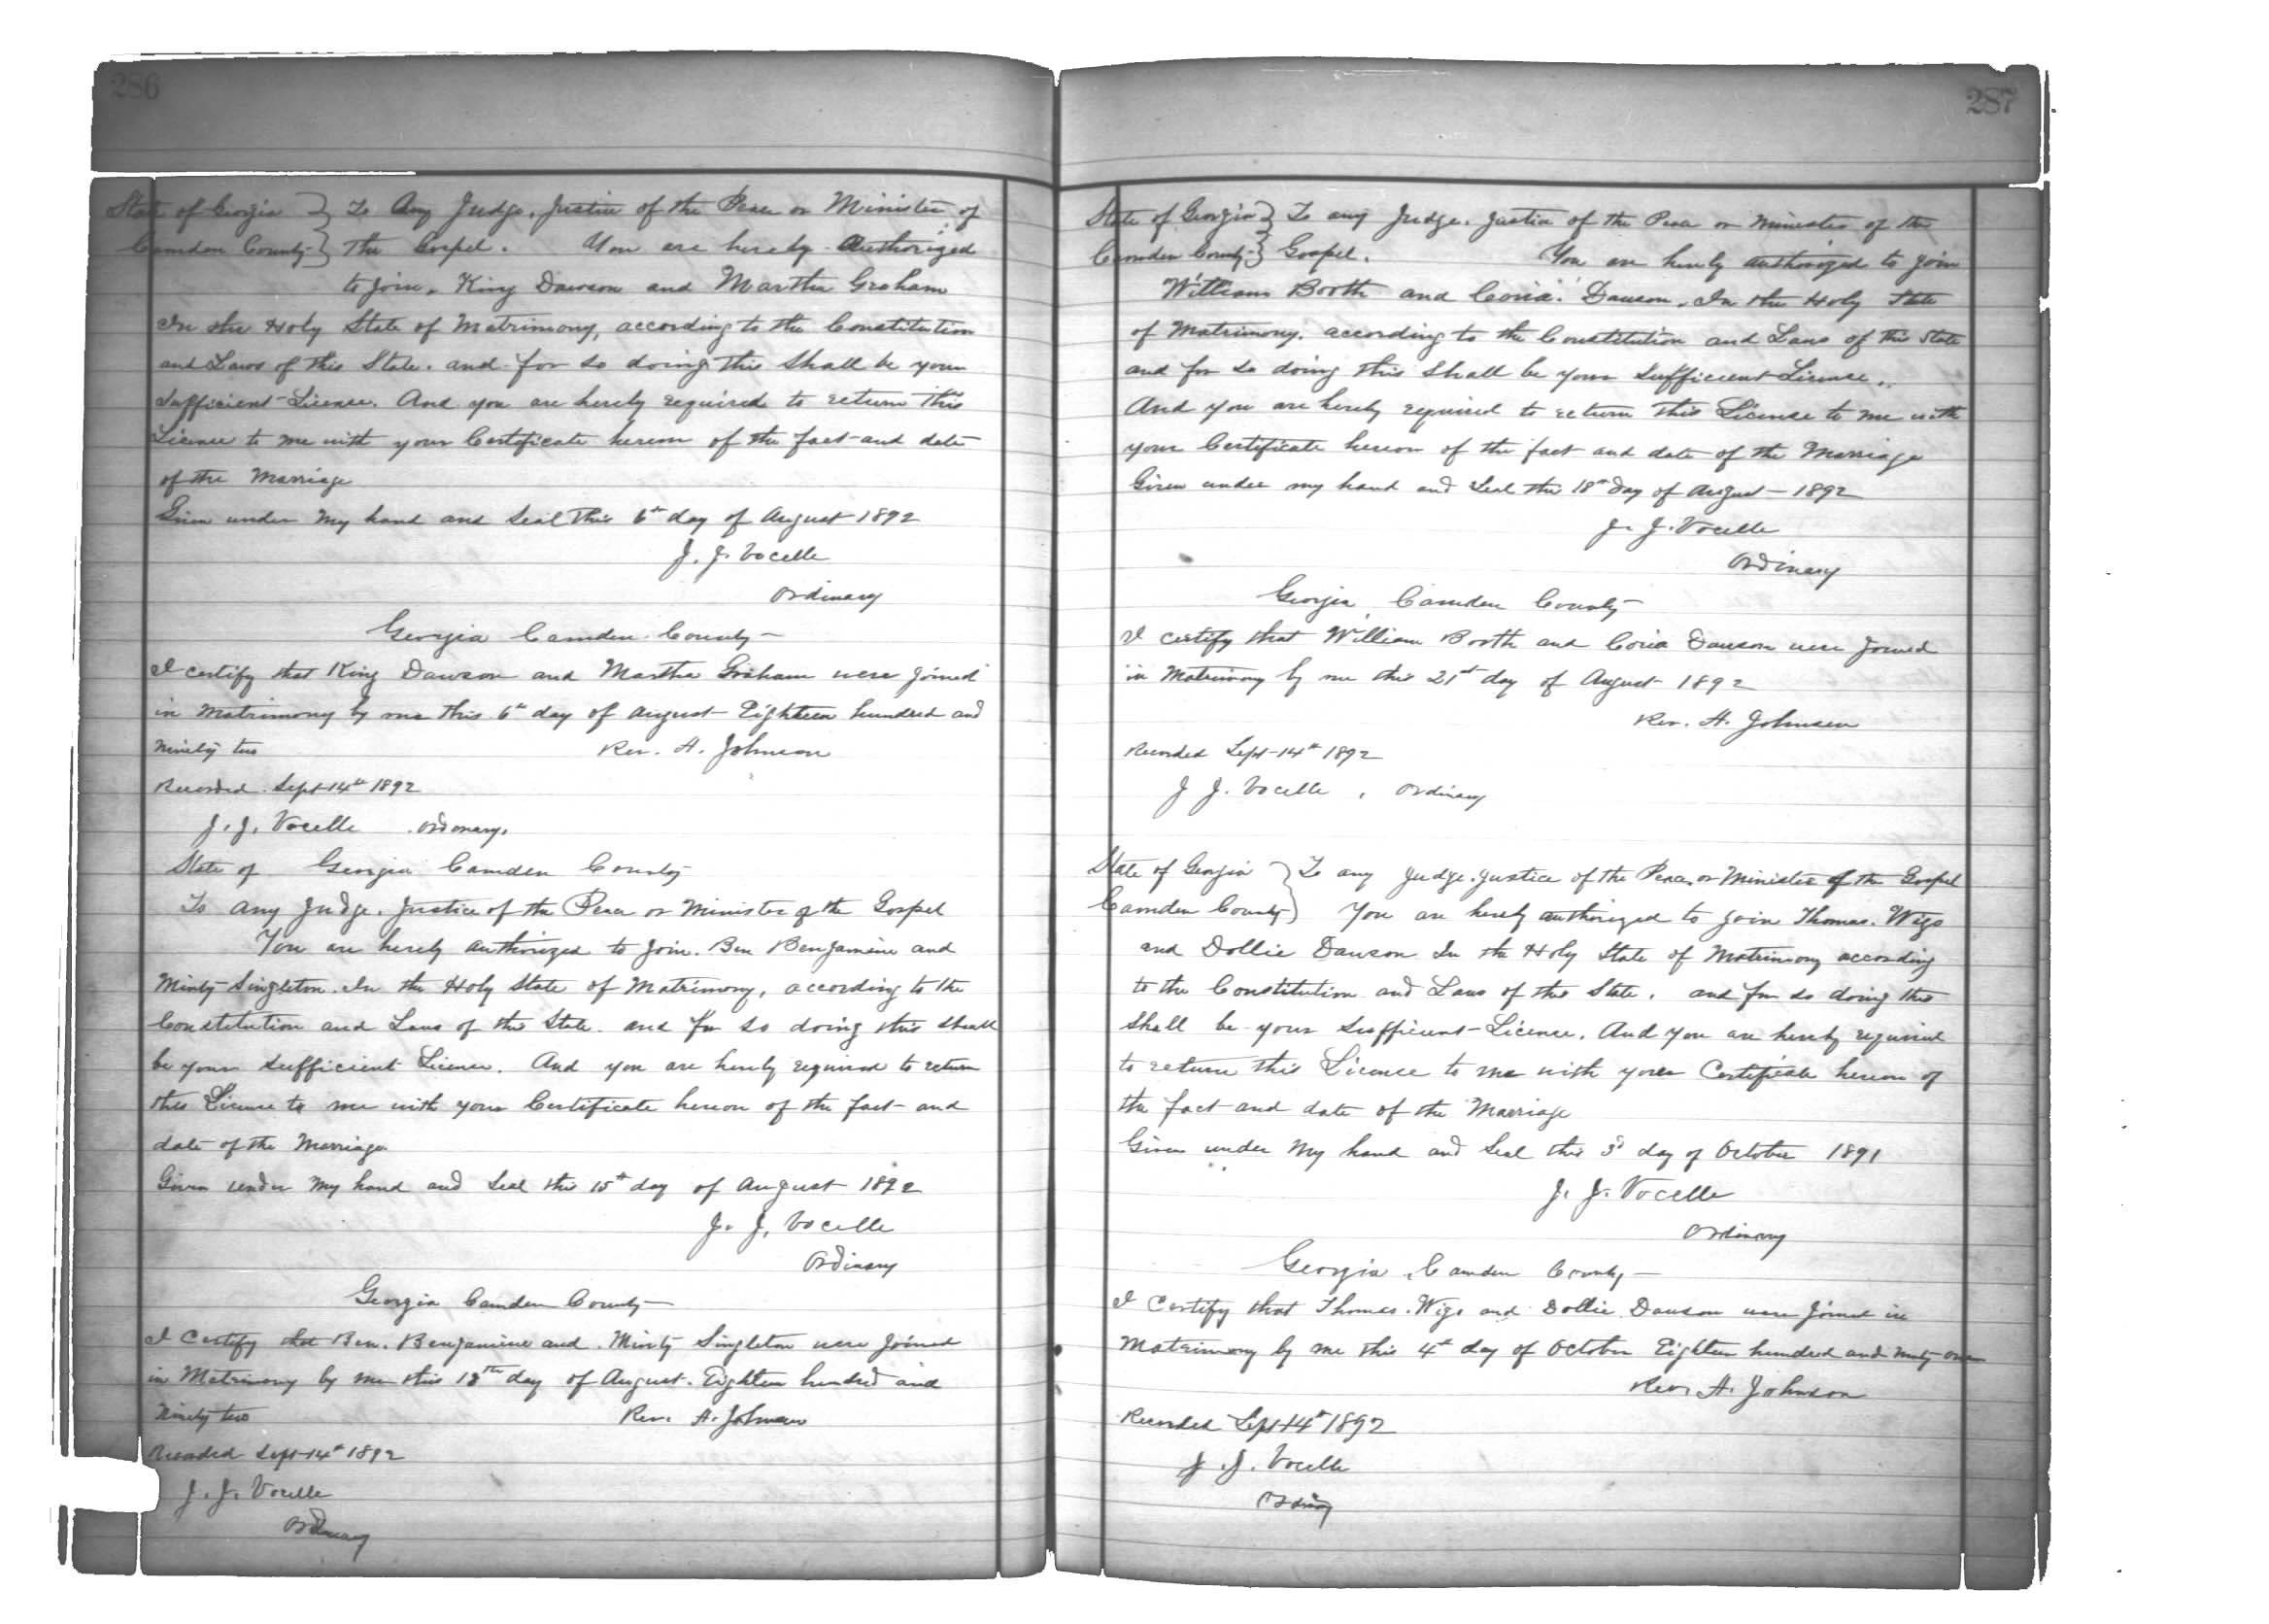 286
State of Georgia } To Any Judge, Justice of the Peace or Minister of
Camden County } the Gospel. You are hereby Authorized
to join, King Dawson and Martha Graham
In the Holy State of Matrimony, according to the Constitution
and Laws of this State. and for so doing this shall be your
Sufficient License. And you are hereby required to return this
License to me with your Certificate hereon of the fact and date
of the Marriage
Given under my hand and Seal this 6th day of August 1892
J. J. Vocelle
Ordinary
Georgia Camden County
I certify that King Dawson and Martha Graham were joined
in Matrimony by me this 6th day of August Eighteen hundred and
Ninety two Rev. A. Johnson
Recorded Sept 14th 1892
J. J. Vocelle Ordonary.
State of Georgia Camden County
To any Judge, Justice of the Peace or Minister of the Gospel
You are hereby authorized to join. Ben Benjamine and
Minty Singleton. In the Holy State of Matrimony, according to the
Constitution and Laws of this State. and for so doing this shall
be your sufficient License. And you are hereby required to return
this License to me with your Certificate hereon of the fact and
date of the Marriage
Given under my hand and seal this 15th day of August 1892
J. J. Vocelle
Ordinary
Georgia Camden County
I Certify that Ben. Benjamine and Minty Singleton were joined
in Matrimony by me this 18th day of August. Eighteen hundred and
Ninety two Rev. A. Johnson
Recorded Sept 14th 1892
J. J. Vocelle
Ordinary
287
State of Georgia } To any Judge. Justice of the Peace or Minister of the
Camden County } Gospel. You are hereby authorized to join
William Booth and Coria Dawson. In the Holy State
of Matrimony. according to the Constitution and Laws of this State
and for so doing this shall be your sufficient License.
And you are hereby required to return this License to me with
your Certificate hereon of the fact and date of the Marriage
Given under my hand and Seal this 18th day of August 1892
J. J. Vocelle
Ordinary
Georgia Camden County
I certify that William Booth and Coria Dawson were joined
in Matrimony by me this 21st day of August 1892
Rev. A. Johnson
Recorded Sept 14th 1892
J J. Vocelle, Ordinary
State of Georgia } To any Judge. Justice of the Peace or Minister of the Gospel
Camden County } You are hereby authorized to join Thomas. Wigs
and Dollie Dawson In the Holy State of Matrimony according
to the Constitution and Laws of this State. and for so doing this
shall be your Sufficient License. And you are hereby required
to return this License to me with your Certificate hereon of
the fact and date of the Marriage
Given under my hand and Seal this 3d day of October 1891
J. J. Vocelle
Ordinary
Georgia, Camden County
I Certify that Thomas. Wigs and Dollie Dawson were joined in
Matrimony by me this 4th day of October Eighteen hundred and ninty one
Rev. A. Johnson
Recorded Sept 14th 1892
J. J. Vocelle
Ordinary